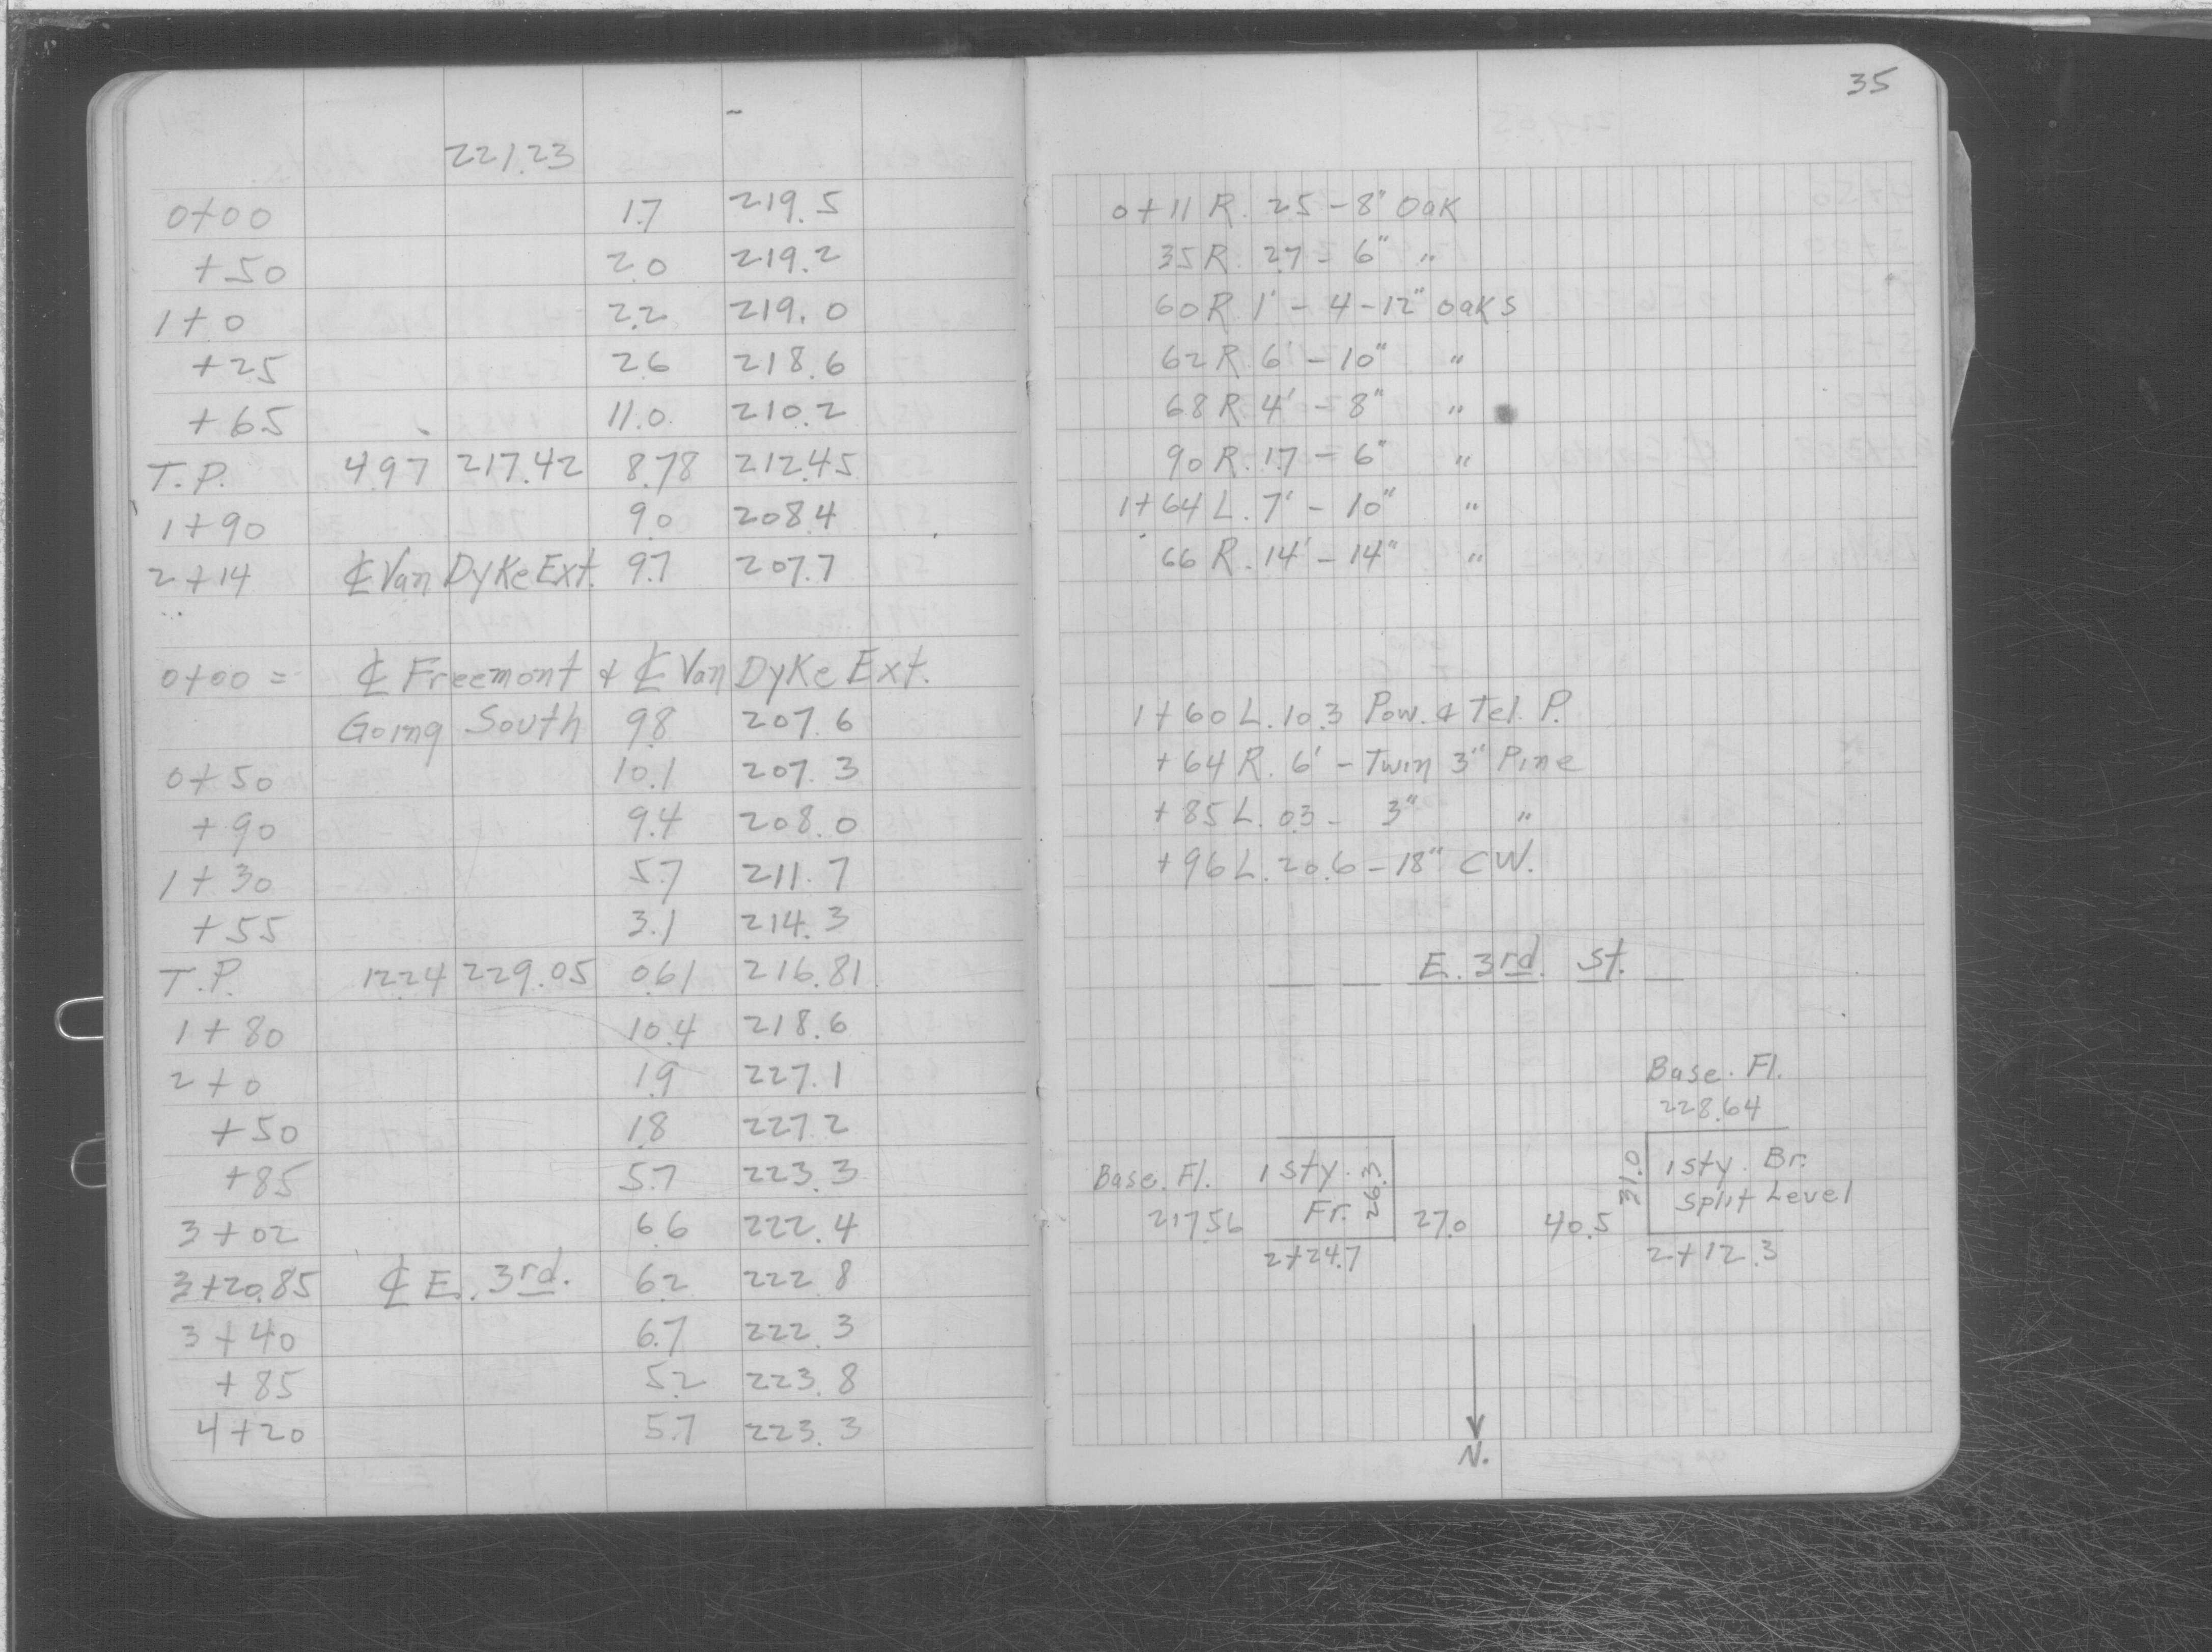 221.23
0+00 1.7 219.5
+50 2.0 219.2
1+0 2.2 219.0
+25 2.6 218.6
+65 11.0 210.2
T.P. 4.97 217.42 8.78 212.45
1+90 9.0 208.4
2+14 ℄ Van Dyke Ext. 9.7 207.7
0+00 = ℄ Freemont & ℄ Van Dyke Ext.
Going South 9.8 207.6
0+50 10.1 207.3
+90 9.4 208.0
1+30 5.7 211.7
+55 3.1 214.3
T.P. 12.24 229.05 0.61 216.81
1+80 10.4 218.6
2+0 1.9 227.1
+50 1.8 227.2
+85 5.7 223.3
3+02 6.6 222.4
3+20.85 ℄ E. 3rd. 6.2 222.8
3+40 6.7 222.3
+85 5.2 223.8
4+20 5.7 223.3
35
0+11 R. 25 - 8" Oak
35 R. 27 - 6" "
60 R. 1' - 4 - 12" oaks
62 R. 6' - 10" "
68 R. 4' - 8" "
90 R. 17 - 6" "
1+64 L. 7' - 10" "
66 R. 14' - 14" "
1+60 L. 10.3 Pow. & Tel. P.
+64 R. 6' - Twin 3" Pine
+85 L. 0.3 - 3" "
+96 L. 20.6 - 18" CW.
E. 3rd. St.
Base. Fl.
228.64
Base. Fl. 1 sty. 26.3 31.0 1 sty. Br.
Split Level
217.56 Fr. 27.0 40.5
2+24.7 2+12.3
N.